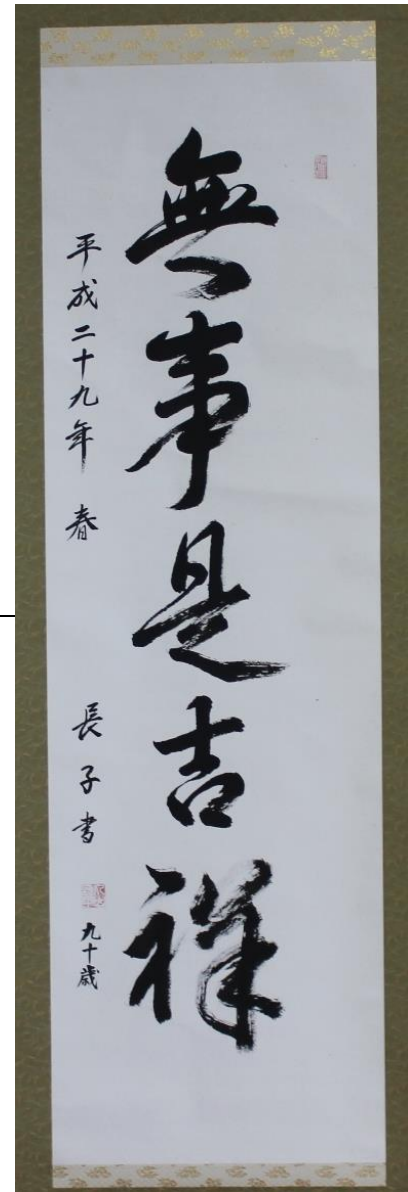 無事是吉祥
平成二十九年 春 長子書 九十歳